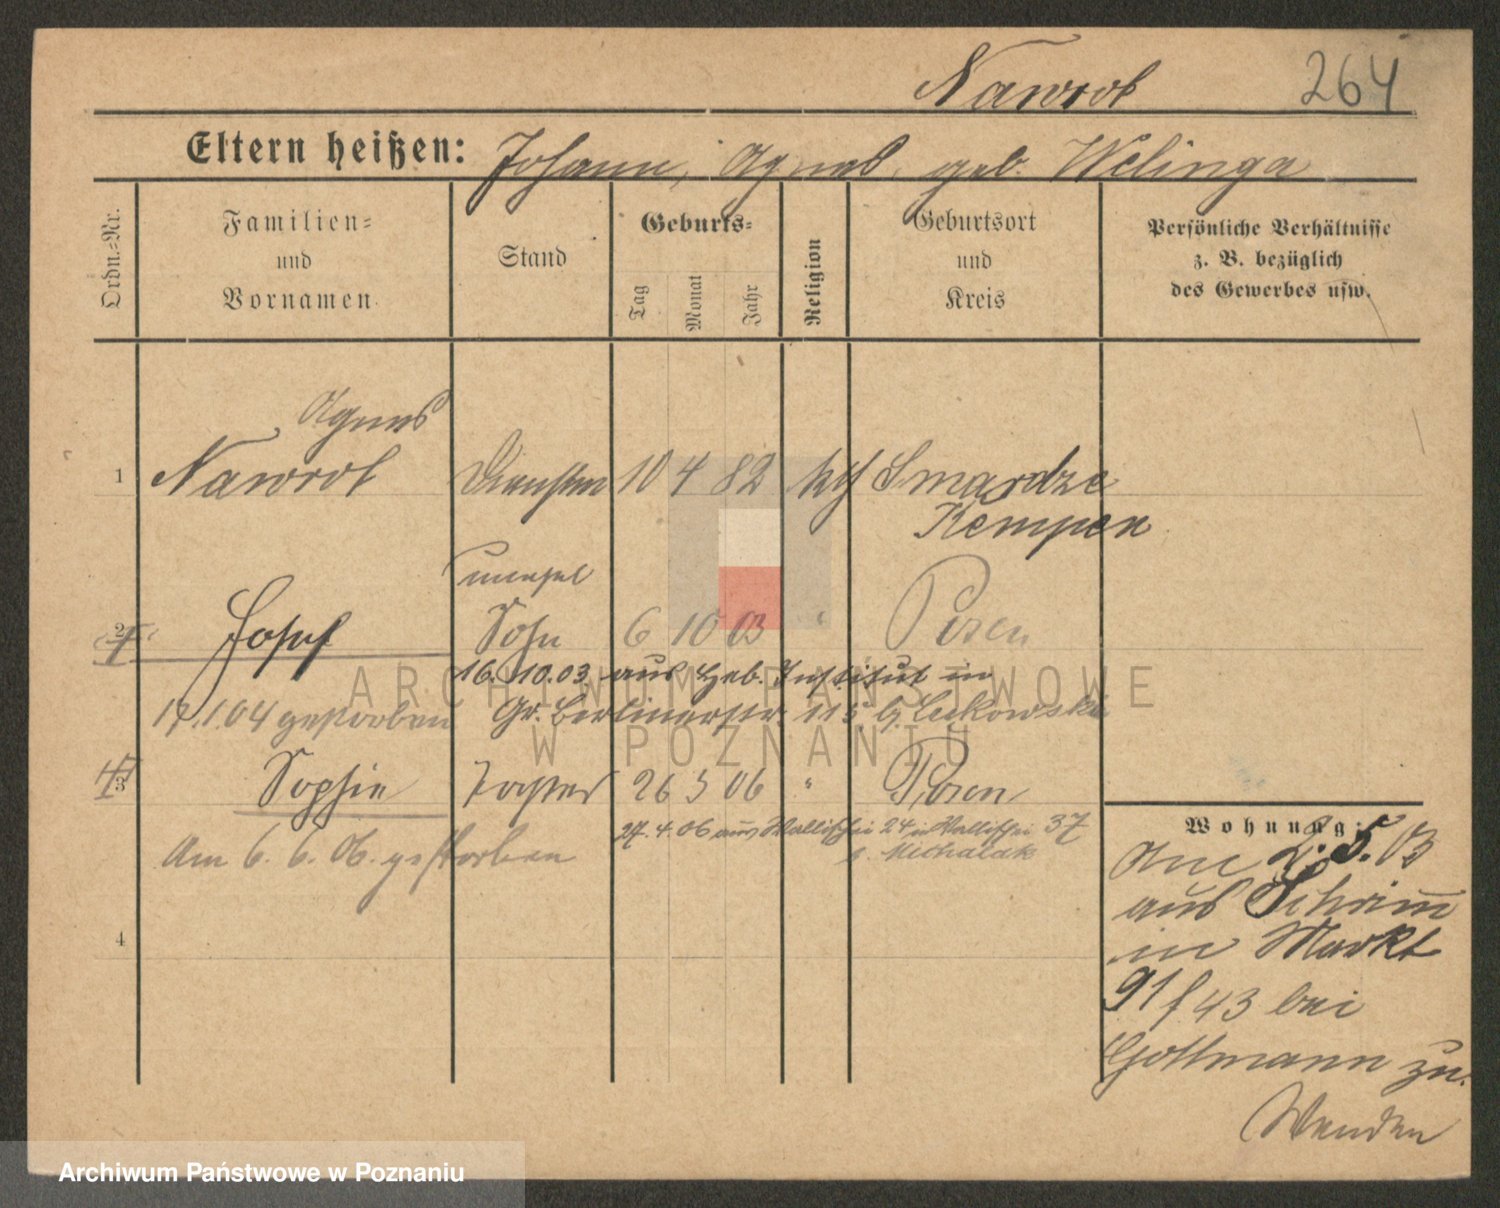 Nawrot 264
Eltern heißen: Johann, Agnes, geb. Welinga
Ordn.-Nr.
Familien-
und
Vornamen.
Stand
Geburts-
Tag
Monat
Jahr
Religion
Geburtsort
und
Kreis
Persönliche Verhältnisse
z. B. bezüglich
des Gewerbes usw.
Agnes
1 Nawrot 10 4 82 kth Smardze
Kempen
unehel
2 Josef Sohn 6 10 03 " Posen
16.10.03 aus Geb. Institut in
17.1.04 gestorben Gr. Berlinerstr. 115 b. Lukowska
3 Sophie Tochter 26 3 06 " Posen
27.4.06 aus Wallischei 24 in Wallischei 37
b. Michalak
Am 6. 6. 06. gestorben
4
Wohnung:
Am 2.5.03
aus Schrim̅
in Markt
91/43 bei
Gottmann zu.
Wenden
ARCHIWUM PAŃSTWOWE
W POZNANIU
Archiwum Państwowe w Poznaniu